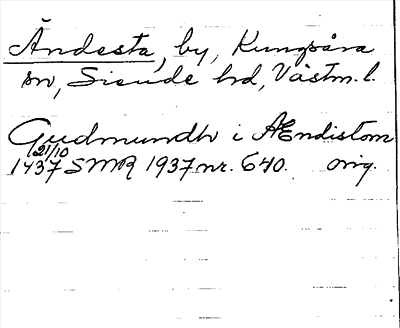 Ändesta, by, Kungsåra
sn, Siende hd, Västm. l.
Gudmundh i Ændistom
21/10
1437 SMR 1937 nr. 640. orig.